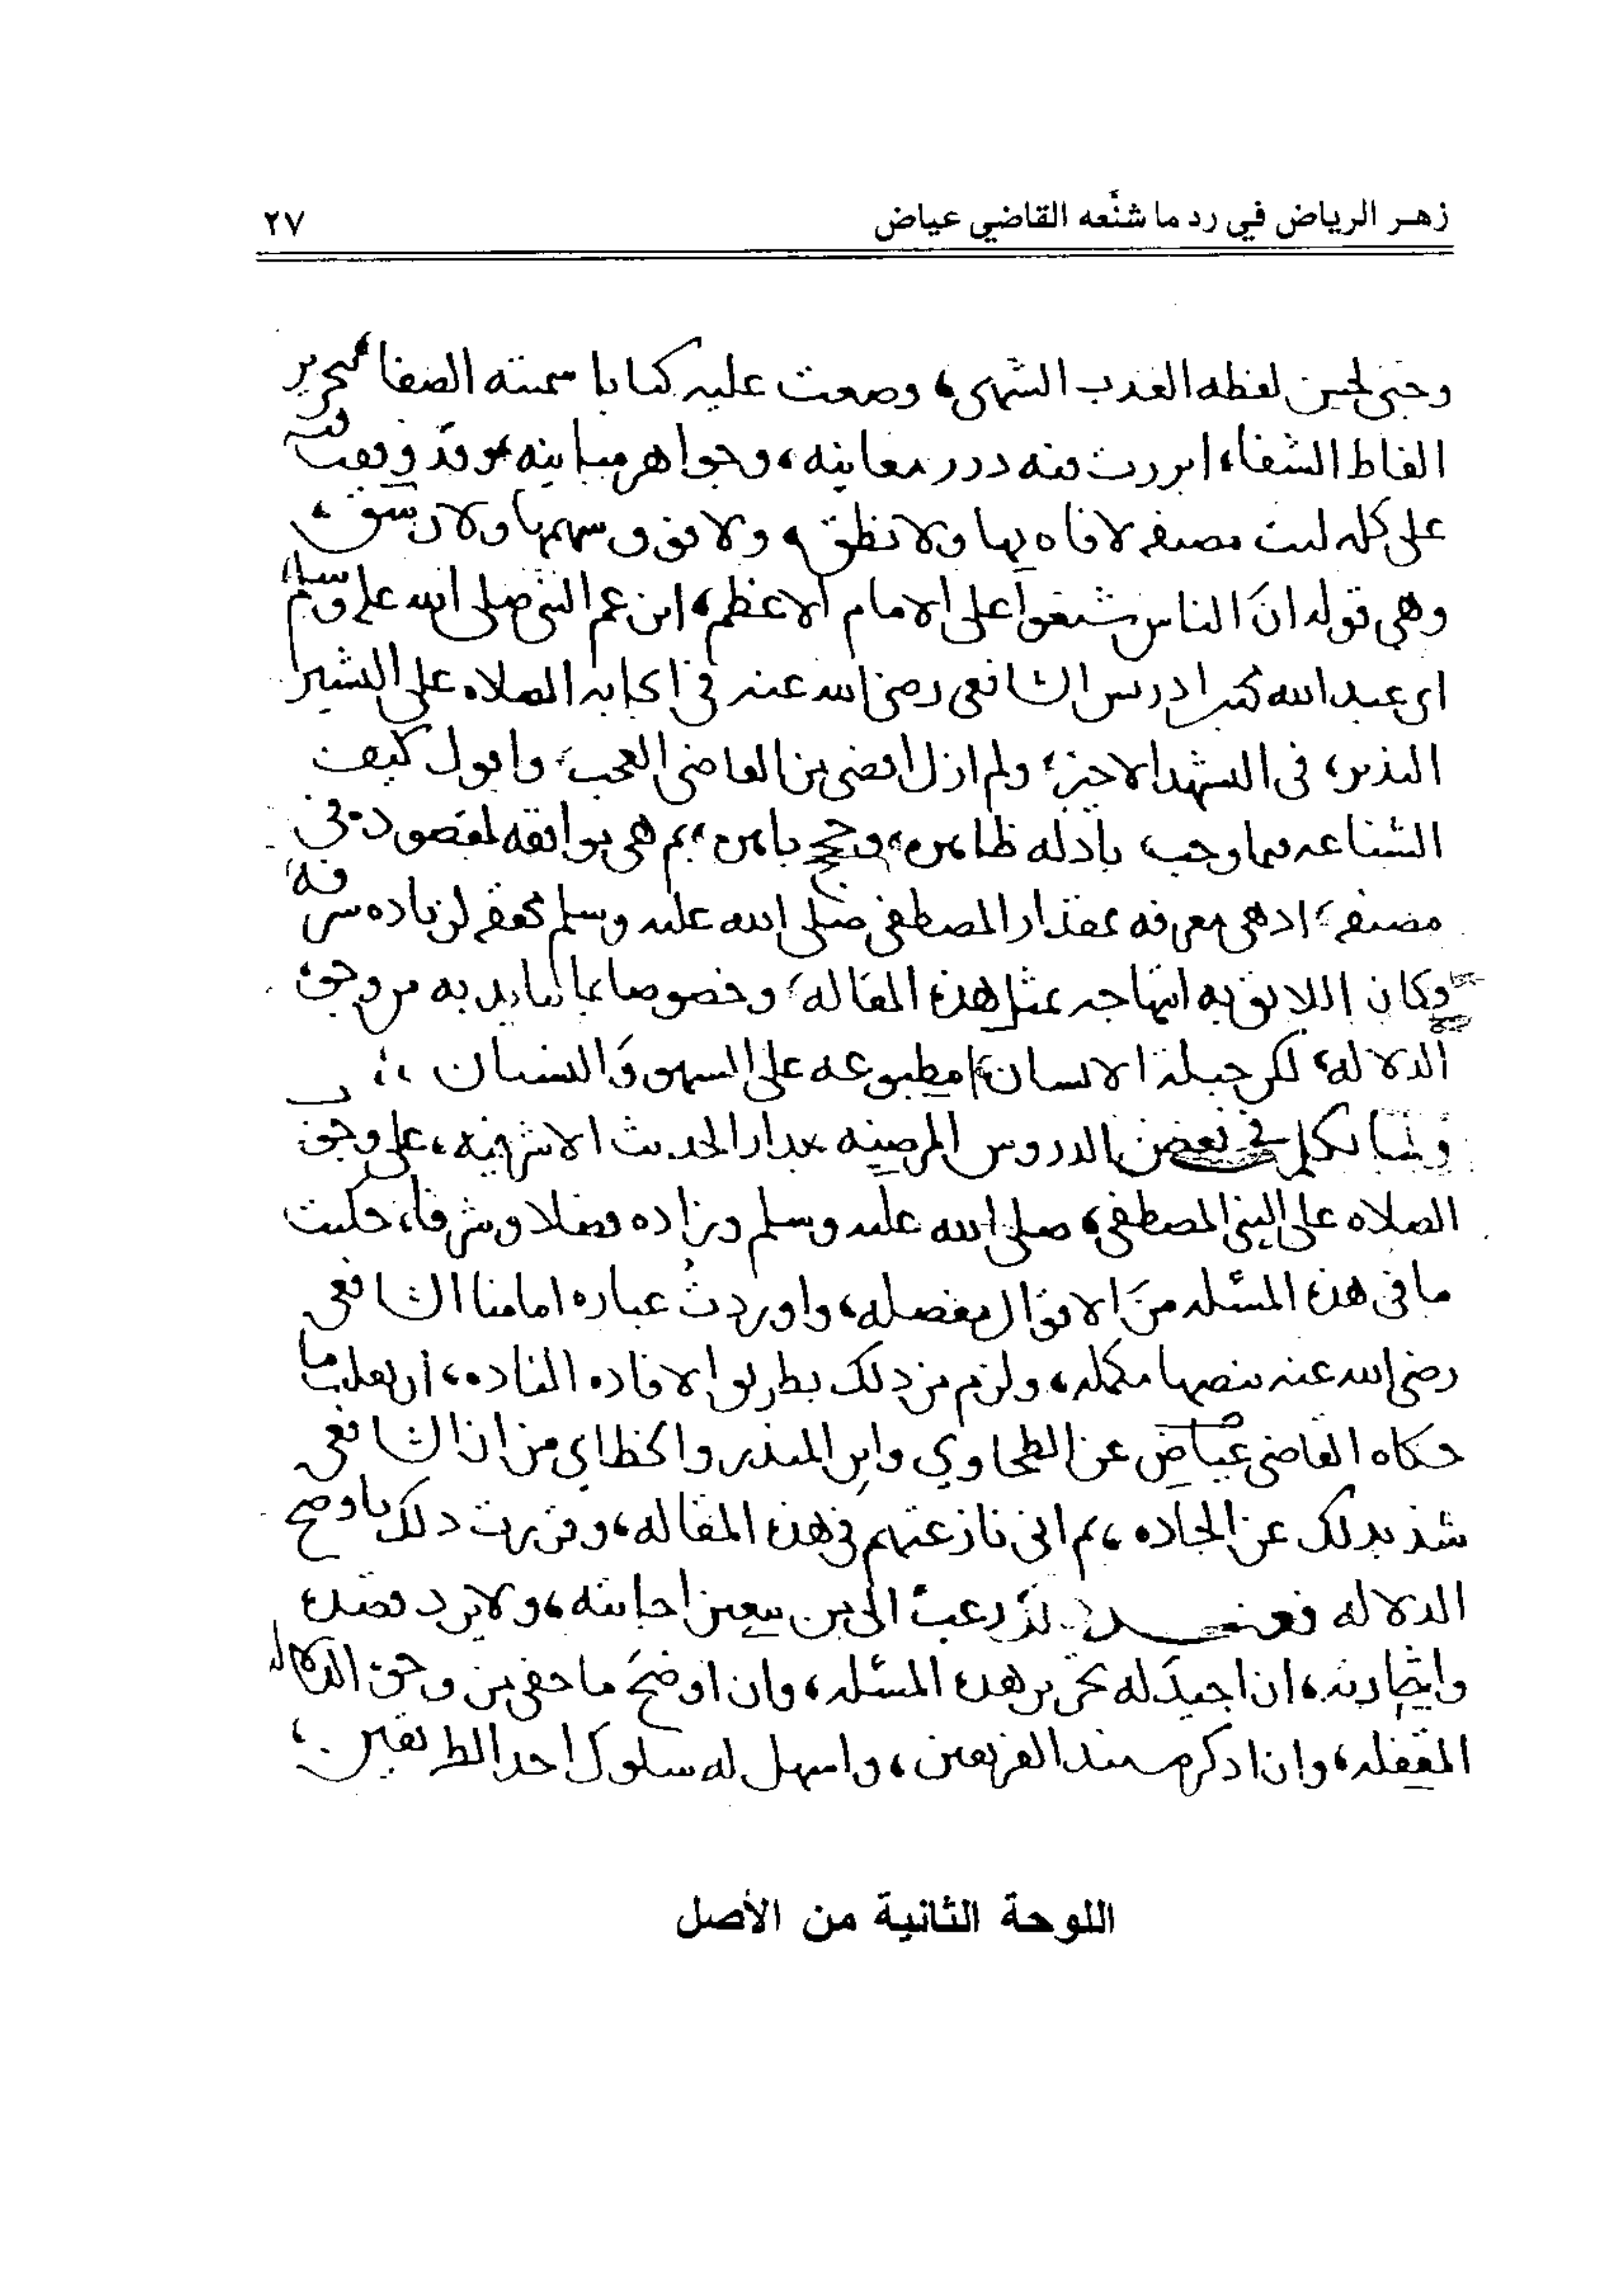 زهر الرياض في رد ما شنَّعه القاضي عياض
٢٧
وحتى لحسن لفظه العذب الشهى، وضعت عليه كتابا سميته الصفا بتحرير
الفاظ الشفا، ابرزت منه درر معانيه، وجواهر مبانيه، وقد وقفت فيه
على كلمه ليت مصنفه لا فاه بها ولا نطق، ولا فوق سهمها ولا رشق،
وهي قوله ان الناس شنعوا على الامام الاعظم، ابن عم النبي صلى الله عليه وسلم
ابي عبد الله محمد بن ادريس الشافعي رضي الله عنه في ايجابه الصلاه على البشير
النذير، في التشهد الاخير، ولم ازل اقضي من القاضي العجب، واقول كيف
الشناعه فيما وجب، بأدله ظاهره، وحجج باهره، ثم هي موافقه لمقصوده في
مصنفه، اذ هي معرفه بمقدار المصطفى صلى الله عليه وسلم محققه لزياده شرفه،
وكان اللائق به ابتهاجه بمثل هذه المقاله، وخصوصا بما تتأيد به من وجوه
الدلاله، لكن جبلة الانسان مطبوعه على السهو والنسيان
ولما تكلم في بعض الدروس المرضيه بدار الحديث الاشرفيه، على وجوب
الصلاه على النبي المصطفى، صلى الله عليه وسلم وزاده فضلا وشرفا، حكيت
ما في هذه المسئله من الاقوال مفصله، واوردت عباره امامنا الشافعي
رضي الله عنه بنصها مكمله، ولزم من ذلك بطريق الافاده، ان نقلت ما
حكاه القاضي عياض عن الطحاوي وابن المنذر والخطابي من ان الشافعي
شذ بذلك عن الجاده، ثم اني نازعتهم في هذه المقاله، وقررت ذلك باوضح
الدلاله فعند ذلك رغب الي من يتعين اجابته، ولا يرد قصده
واشارته، ان اجيد له تحرير هذه المسئله، وان اوضح ما خفي من وجوه الدلاله
المقفله، وان اذكر مستند الفريقين، واسهل له سلوك احد الطريقين،
اللوحة الثانية من الأصل